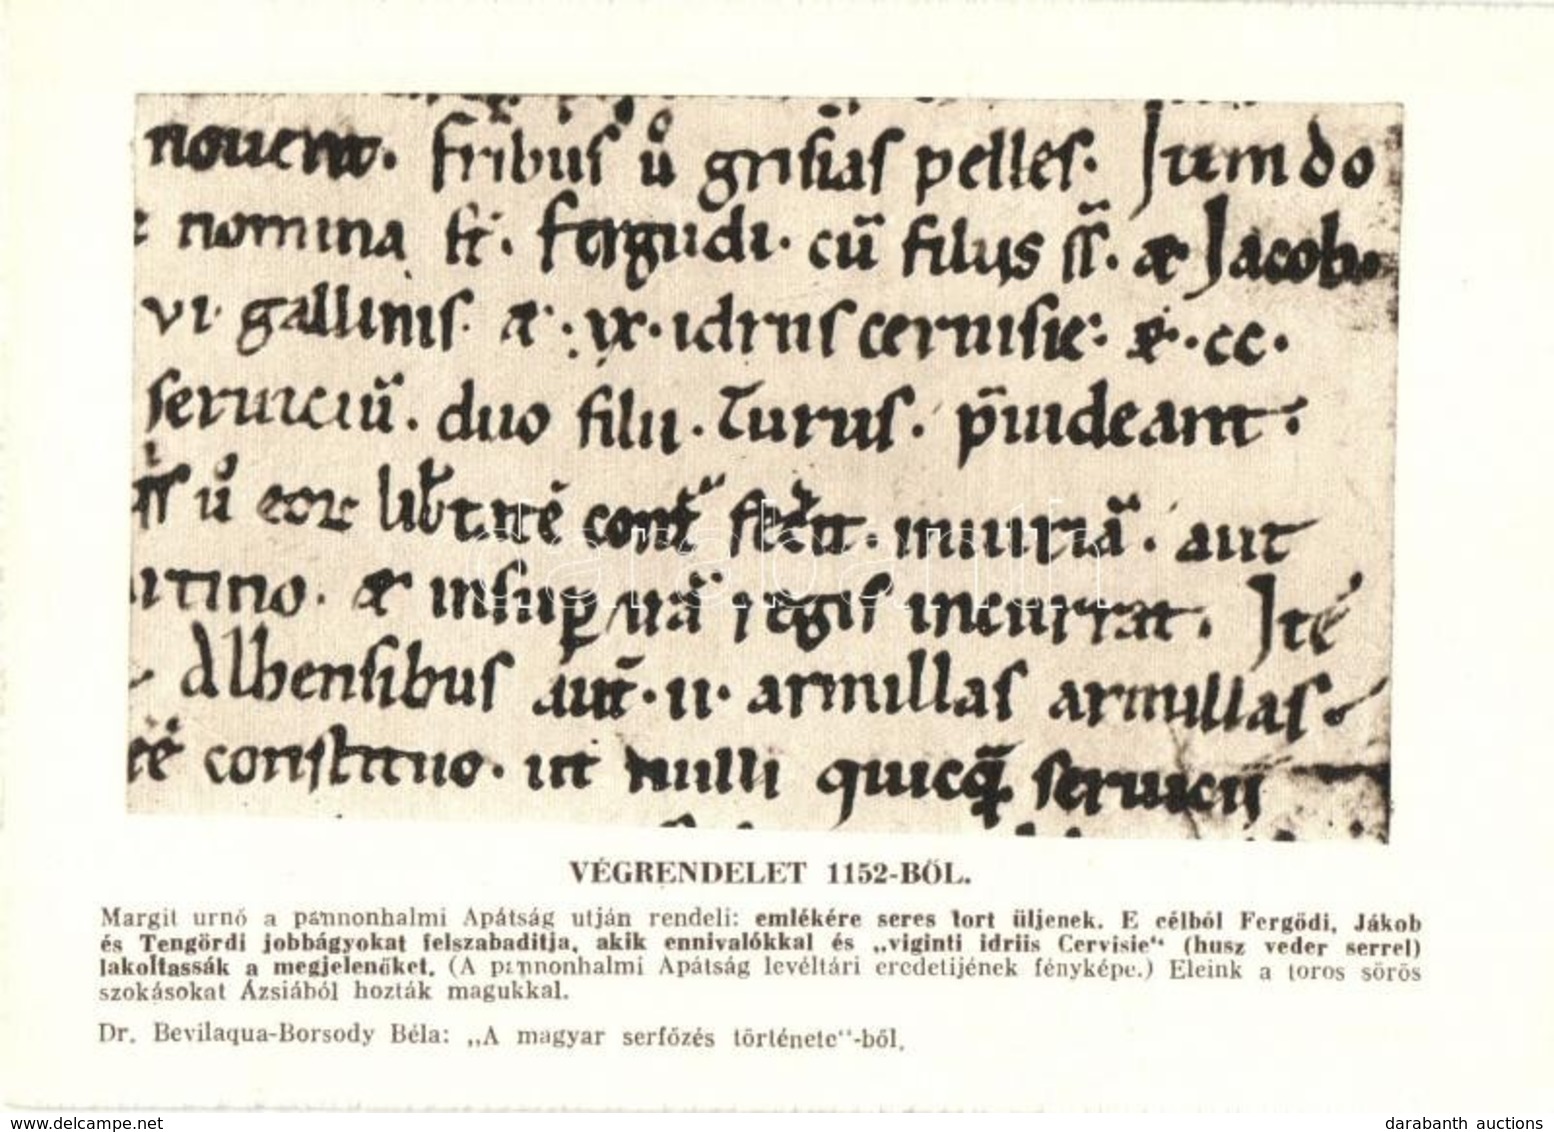 nouerit. fribus u grisias pelles. Jumdo
nomina st. fergudi. cu filiis ss. & Jacob.
vi gallinis & . ix. idriis ceruisie: & . cc.
seruiciu. duo filii. Turus. puideant.
ss u eor libtate cont fecit. iniuria. aut
& insup ira regis incurrat. Ite
Albensibus aut. ii. armillas armillas.
constituo. ut nulli quicq seruicii
darabanth
VÉGRENDELET 1152-BŐL.
Margit urnő a pannonhalmi Apátság utján rendeli: emlékére seres tort üljenek. E célból Fergödi, Jákob
és Tengördi jobbágyokat felszabaditja, akik ennivalókkal és „viginti idriis Cervisie“ (husz veder serrel)
lakoltassák a megjelenőket. (A pannonhalmi Apátság levéltári eredetijének fényképe.) Eleink a toros sörös
szokásokat Ázsiából hozták magukkal.
Dr. Bevilaqua-Borsody Béla: „A magyar serfőzés története“-ből.
www.delcampe.net
darabanth auctions